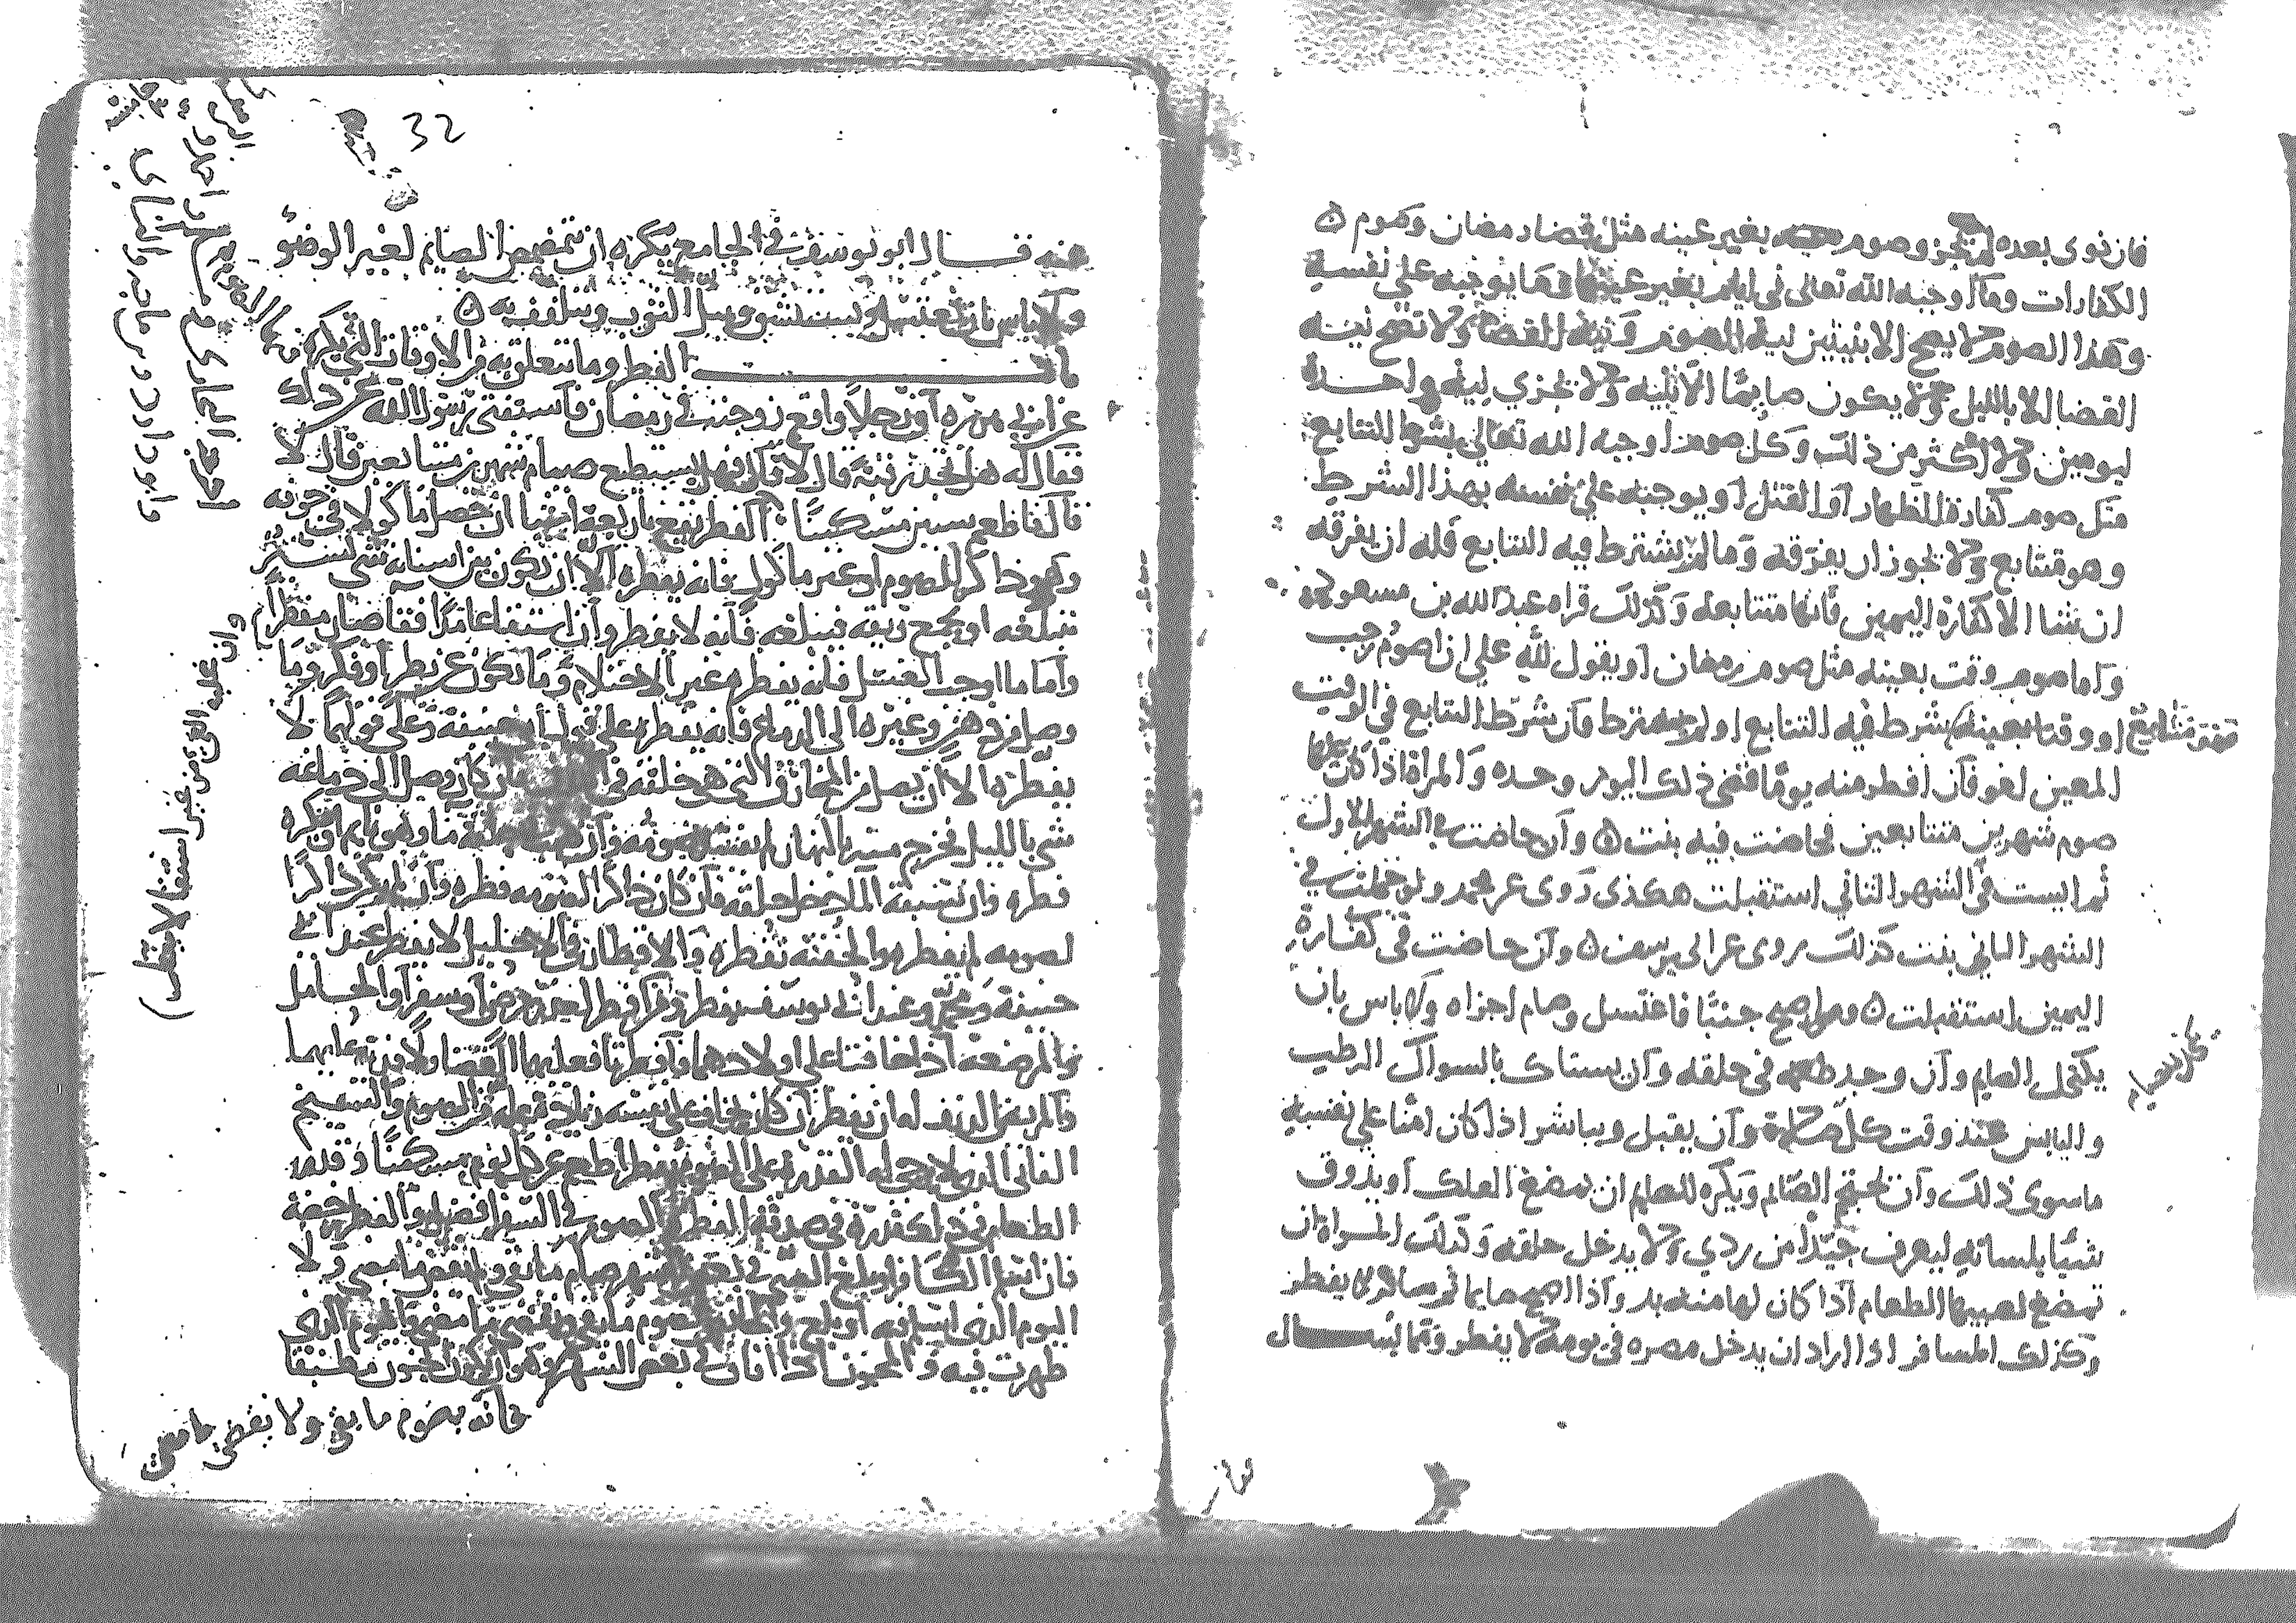 فان نوى بعده لم يجز وصوم بغير عينه مثل قضا رمضان وصوم
الكفارات وما اوجبه الله تعالى في ايام بغير عينها وما يوجبه على نفسه
وهذا الصوم لا يصح الا بنيتين نية الصوم ونية القضا ولا تصح نيته
القضا الا بالليل ولا يكون صايما الا بنية ولا تجزي نية واحدة
ليومين ولا اكثر من ذلك وكل صوم اوجبه الله تعالى بشرط التتابع
مثل صوم كفارة الظهار او القتل او يوجبه على نفسه بهذا الشرط
وهو متتابع ولا يجوز ان يفرقه وما لم يشترط فيه التتابع فله ان يفرقه
ان شا الا كفارة اليمين فانها متتابعه وكذلك قراه عبد الله بن مسعود
واما صوم وقت بعينه مثل صوم رمضان او يقول لله علي ان اصوم رجب
او وقتا بعينه يشرط فيه التتابع او لم يشترط فان شرط التتابع في الوقت
المعين لغو فان افطر منه يوما قضى ذلك اليوم وحده والمراة اذا كان عليها
صوم شهرين متتابعين فحاضت فيه بنت وان حاضت في الشهر الاول
ثم ايست في الشهر الثاني استقبلت هكذى روى عن محمد ولو حبلت في
الشهر الثاني بنت كذلك روى عن ابي يوسف وان حاضت في كفارة
اليمين استقبلت ومن اصبح جنبا فاغتسل وصام اجزاه ولا باس بان
يكتحل الصايم وان وجد طعمه في حلقه وان يستاك بالسواك الرطب
واليابس عند وقت كل صلاة وان يقبل ويباشر اذا كان امنا على نفسه
ما سوى ذلك وان يحتجم الصايم ويكره للصايم ان يمضغ العلك او يذوق
شيا بلسانه ليعرف جيدا من ردي ولا يدخل حلقه وكذلك المراة ان
تمضغ لصبيها الطعام اذا كان لها منه بد واذا اصبح صايما ثم سافر لا يفطر
وكذلك المسافر اذا اراد ان يدخل مصره في يومه لا يفطر ومما يسال
32
عنه قال ابو يوسف في الجامع يكره ان يتمضمض الصايم لغير الوضو
ولا باس بان يغتسل ويستنشق ويبل الثوب ويتلفف به
باب الفطر وما يتعلق به من الاوقات التي يكره
عن ابي هريره ان رجلا واقع زوجته في رمضان فاستفتى رسول الله عن ذلك
فقال له هل تجد رقبة قال لا قال فهل يستطيع صيام شهرين متتابعين قال لا
قال فاطعم ستين مسكينا الفطر يقع باربعة اشيا ان حصل ماكولا في جوفه
وهو ذاكر للصوم او غير ماكول فانه يفطره الا ان يكون بين اسنانه شي يستتر
فيبلعه او يجمع ريقه فيبلعه فانه لا يفطر وان استقا عامدا فقا صار مفطرا
واما ما اوجب الغسل فانه يفطره غير الاحتلام وما يكون عن نظر او فكر وما
وصل من دهن وغيره الى الدماغ فانه يفطره على قول ابي حنيفة وعلى قولهما لا
يفطره الا ان يصل من المخارق التي هي خلقه في فان كان وصل الى دماغه
شي بالليل فخرج منه بالنهار لم يفسد صومه وان منا وهو نايم او مكره
فطره وان تسبقه الما دخل حلقه فان كان ذاكرا لصومه فطره وان لم يكن ذاكرا
لصومه لم يفطره والحقنه تفطره والاقطار في الاحليل لا يفطر عند ابي
حنيفة ومحمد وعند ابي يوسف يفطر ومن افطر لعذر مرض او سفر او الحامل
والمرضعة اذا خافتا على اولادهما وافطرتا فعليهما القضا ولا فديه عليهما
والمريض الدنف له ان يفطر ان كان يخاف على نفسه زيادة عله من الصوم والشيخ
الفاني الذي لا يرجى له القدرة على الصوم يفطر ويطعم عن كل يوم مسكينا وقدر
الطعام في ذلك قدره في صدقة الفطر والصوم في السفر افضل والفطر رخصة
فان اسلم الكافر او بلغ الصبي في بعض الشهر صام ما بقي ولم يقض ما مضى ولا
اليوم الذي اسلم فيه او بلغ والحايض تصوم ما بقي وتقضي ما مضى واليوم الذي
طهرت فيه والمجنون اذا افاق في بعض الشهر وهو ان يكون الجنون مطبقا
فانه يصوم ما بقي ولا يقضي ما مضى
وان غلبه القي من غير استقا لا يفطر
اخرجه البخاري و مسلم و احمد و
وابو داود و